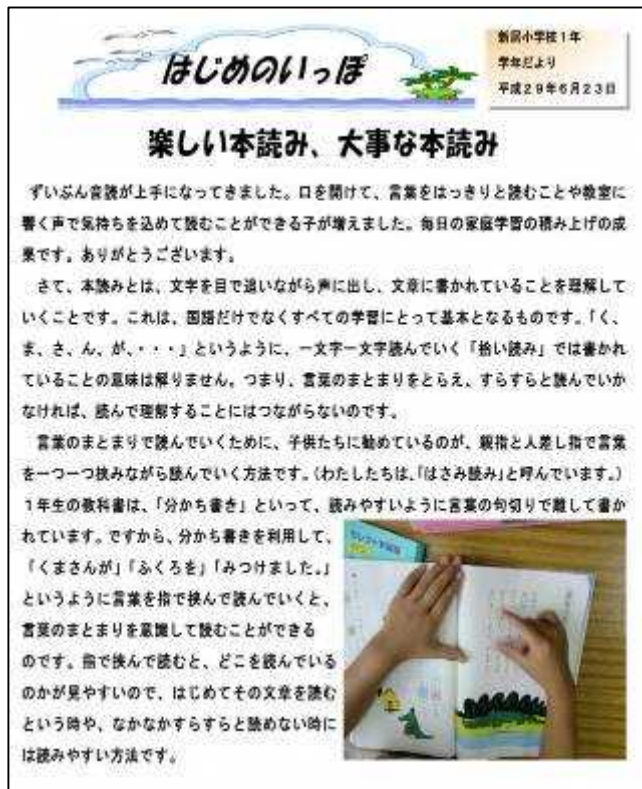 はじめのいっぽ
新居小学校1年
学年だより
平成29年6月23日
楽しい本読み、大事な本読み
ずいぶん音読が上手になってきました。口を開けて、言葉をはっきりと読むことや教室に
響く声で気持ちを込めて読むことができる子が増えました。毎日の家庭学習の積み上げの成
果です。ありがとうございます。
さて、本読みとは、文字を目で追いながら声に出し、文章に書かれていることを理解して
いくことです。これは、国語だけでなくすべての学習にとって基本となるものです。「く、
ま、さ、ん、が、・・・」というように、一文字一文字読んでいく「拾い読み」では書かれ
ていることの意味は解りません。つまり、言葉のまとまりをとらえ、すらすらと読んでいか
なければ、読んで理解することにはつながらないのです。
言葉のまとまりで読んでいくために、子供たちに勧めているのが、親指と人差し指で言葉
を一つ一つ挟みながら読んでいく方法です。(わたしたちは、「はさみ読み」と呼んでいます。)
1年生の教科書は、「分かち書き」といって、読みやすいように言葉の句切りで離して書か
れています。ですから、分かち書きを利用して、
「くまさんが」「ふくろを」「みつけました。」
というように言葉を指で挟んで読んでいくと、
言葉のまとまりを意識して読むことができる
のです。指で挟んで読むと、どこを読んでいる
のかが見やすいので、はじめてその文章を読む
という時や、なかなかすらすらと読めない時に
は読みやすい方法です。